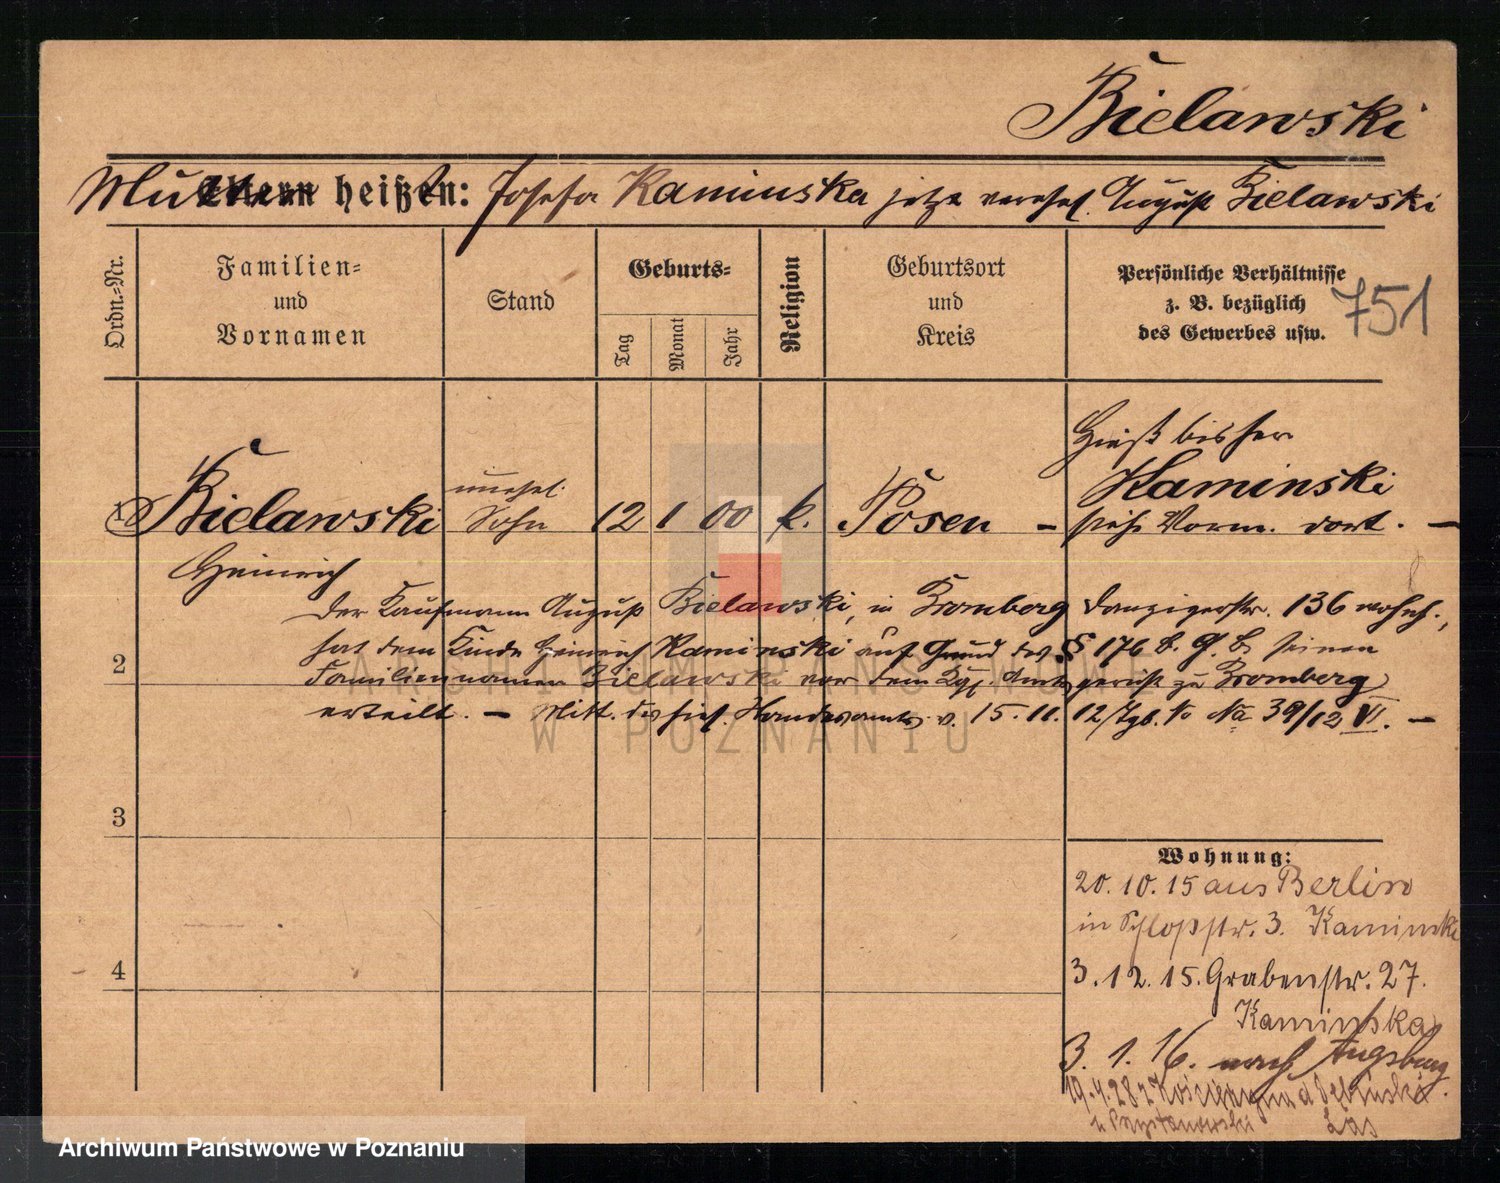 Bielawski
Mutter heißt: Josefa Kaminska jetzt verehel. August Bielawski
Ordn.-Nr.
Familien-
und
Vornamen
Stand
Geburts-
Tag
Monat
Jahr
Religion
Geburtsort
und
Kreis
Persönliche Verhältnisse
z. B. bezüglich
des Gewerbes usw.
751
1
Bielawski
Heinrich
unehel.
Sohn
12 1 00 k. Posen –
Hieß bisher
Kaminski
siehe Verm. dort. –
Der Kaufmann August Bielawski, in Bromberg Danzigerstr. 136 wohnh.,
2
hat dem Kinde Heinrich Kaminski auf Grund des § 176 b. G. B. seinen
Familiennamen Bielawski vor dem Kgl. Amtsgericht zu Bromberg
erteilt. – Mitt. des hies. Standesamts v. 15.11.12 Tgb. No Na 39/12 VI. –
3
4
Wohnung:
20.10.15 aus Berlin
in Schloßstr. 3. Kaminski
3.12.15. Grabenstr. 27.
Kaminska
3.1.16. nach Augsburg.
19.4.28 z
Las
ARCHIWUM PAŃSTWOWE
W POZNANIU
Archiwum Państwowe w Poznaniu